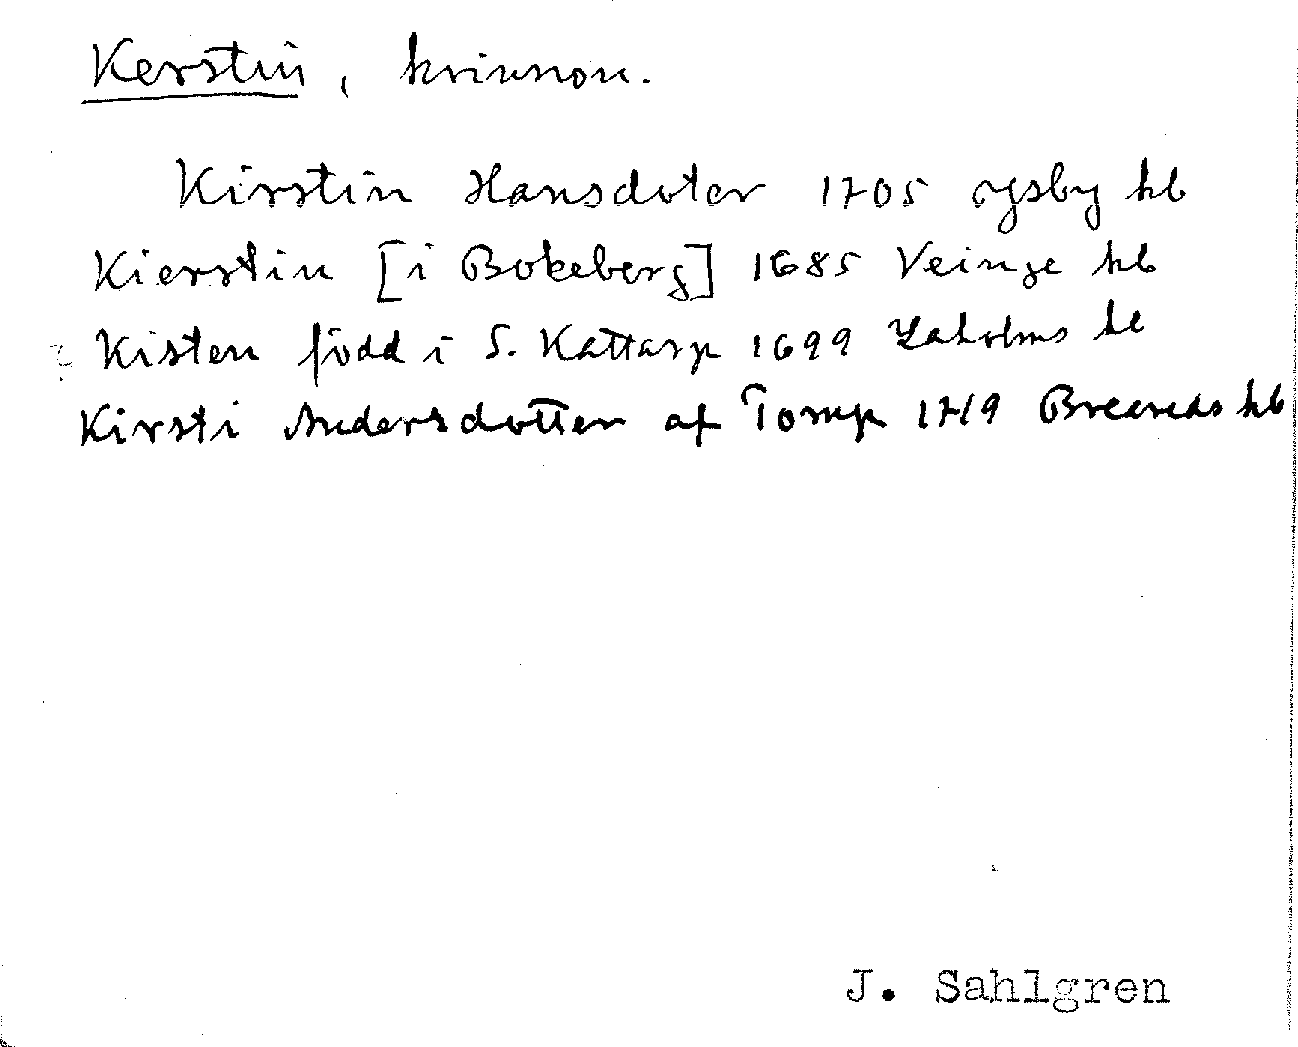 Kerstin, kvinnon.
Kirstin Hansdoter 1705 Ysby kb
Kierstin [i Bokeberg] 1685 Veinge kb
Kisten född i S. Kattarp 1699 Laholms kb
Kirsti Andersdotter af Torup 1719 Breareds kb
J. Sahlgren